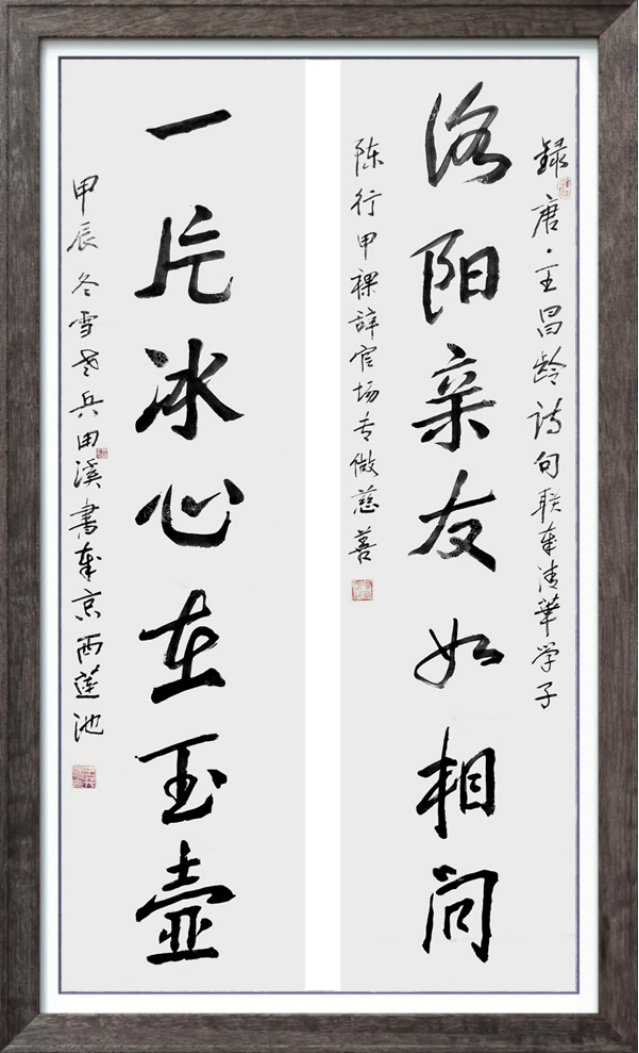 録唐·王昌龄诗句联奉清華学子
洛阳亲友如相问
陈行甲裸辞官场专做慈善
一片冰心在玉壶
甲辰冬雪老兵田溪書奉京西莲池